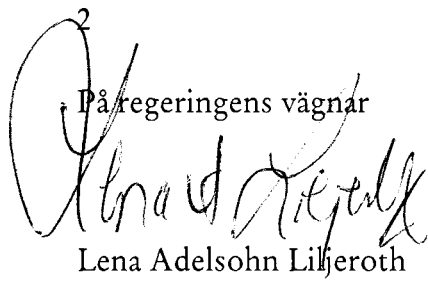 2
På regeringens vägnar
Lena Adelsohn Liljeroth